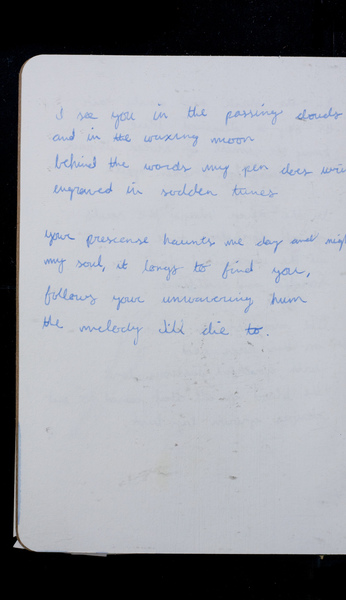 I see you in the passing clouds
and in the waxing moon
behind the words my pen does wri
engraved in sodden tunes
your prescense haunts me day and nigh
my soul, it longs to find you,
follows your unwavering hum
the melody id die to.